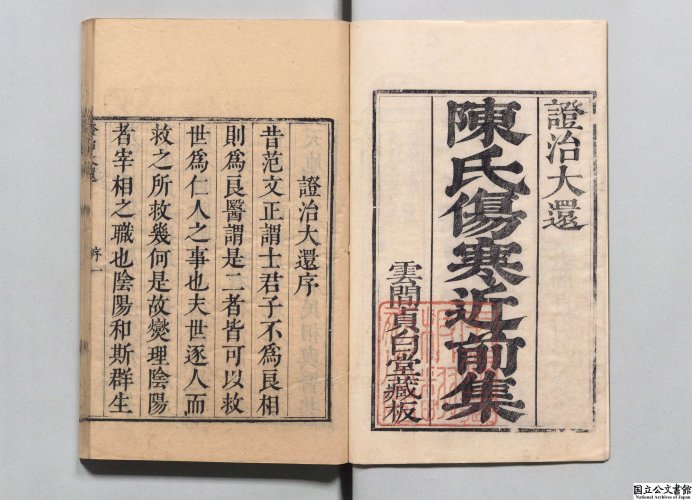 證治大還
陳氏傷寒近前集
雲間貞白堂藏板
證治大還序
昔范文正謂士君子不爲良相
則爲良醫謂是二者皆可以救
世爲仁人之事也夫世逐人而
救之所救幾何是故爕理陰陽
者宰相之職也陰陽和斯群生
序一
国立公文書館
National Archives of Japan